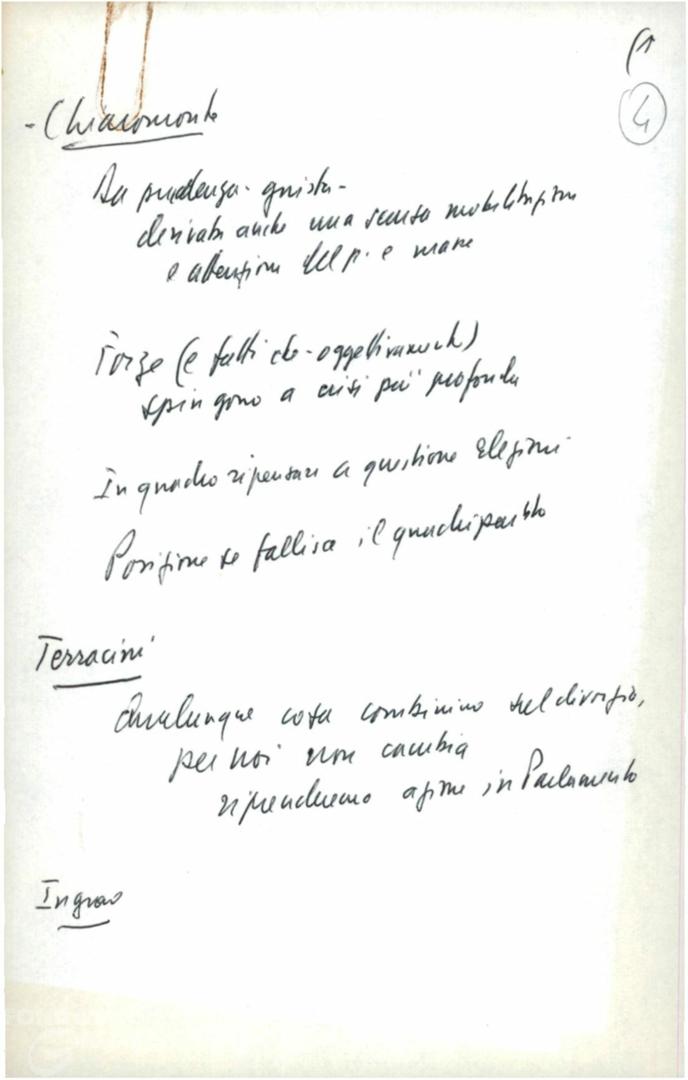 4
- Chiaromonte
Da prudenza - giusta -
derivata anche una scarsa mobilitazione
e attenzione del p. e masse
Forze (e fatti che - oggettivamente)
spingono a crisi più profonda
In quadro ripensare a questione elezioni
Posizione se fallisce il quadripartito
Terracini
Qualunque cosa combinino sul divorzio,
per noi non cambia
riprenderemo azione in Parlamento
Ingrao